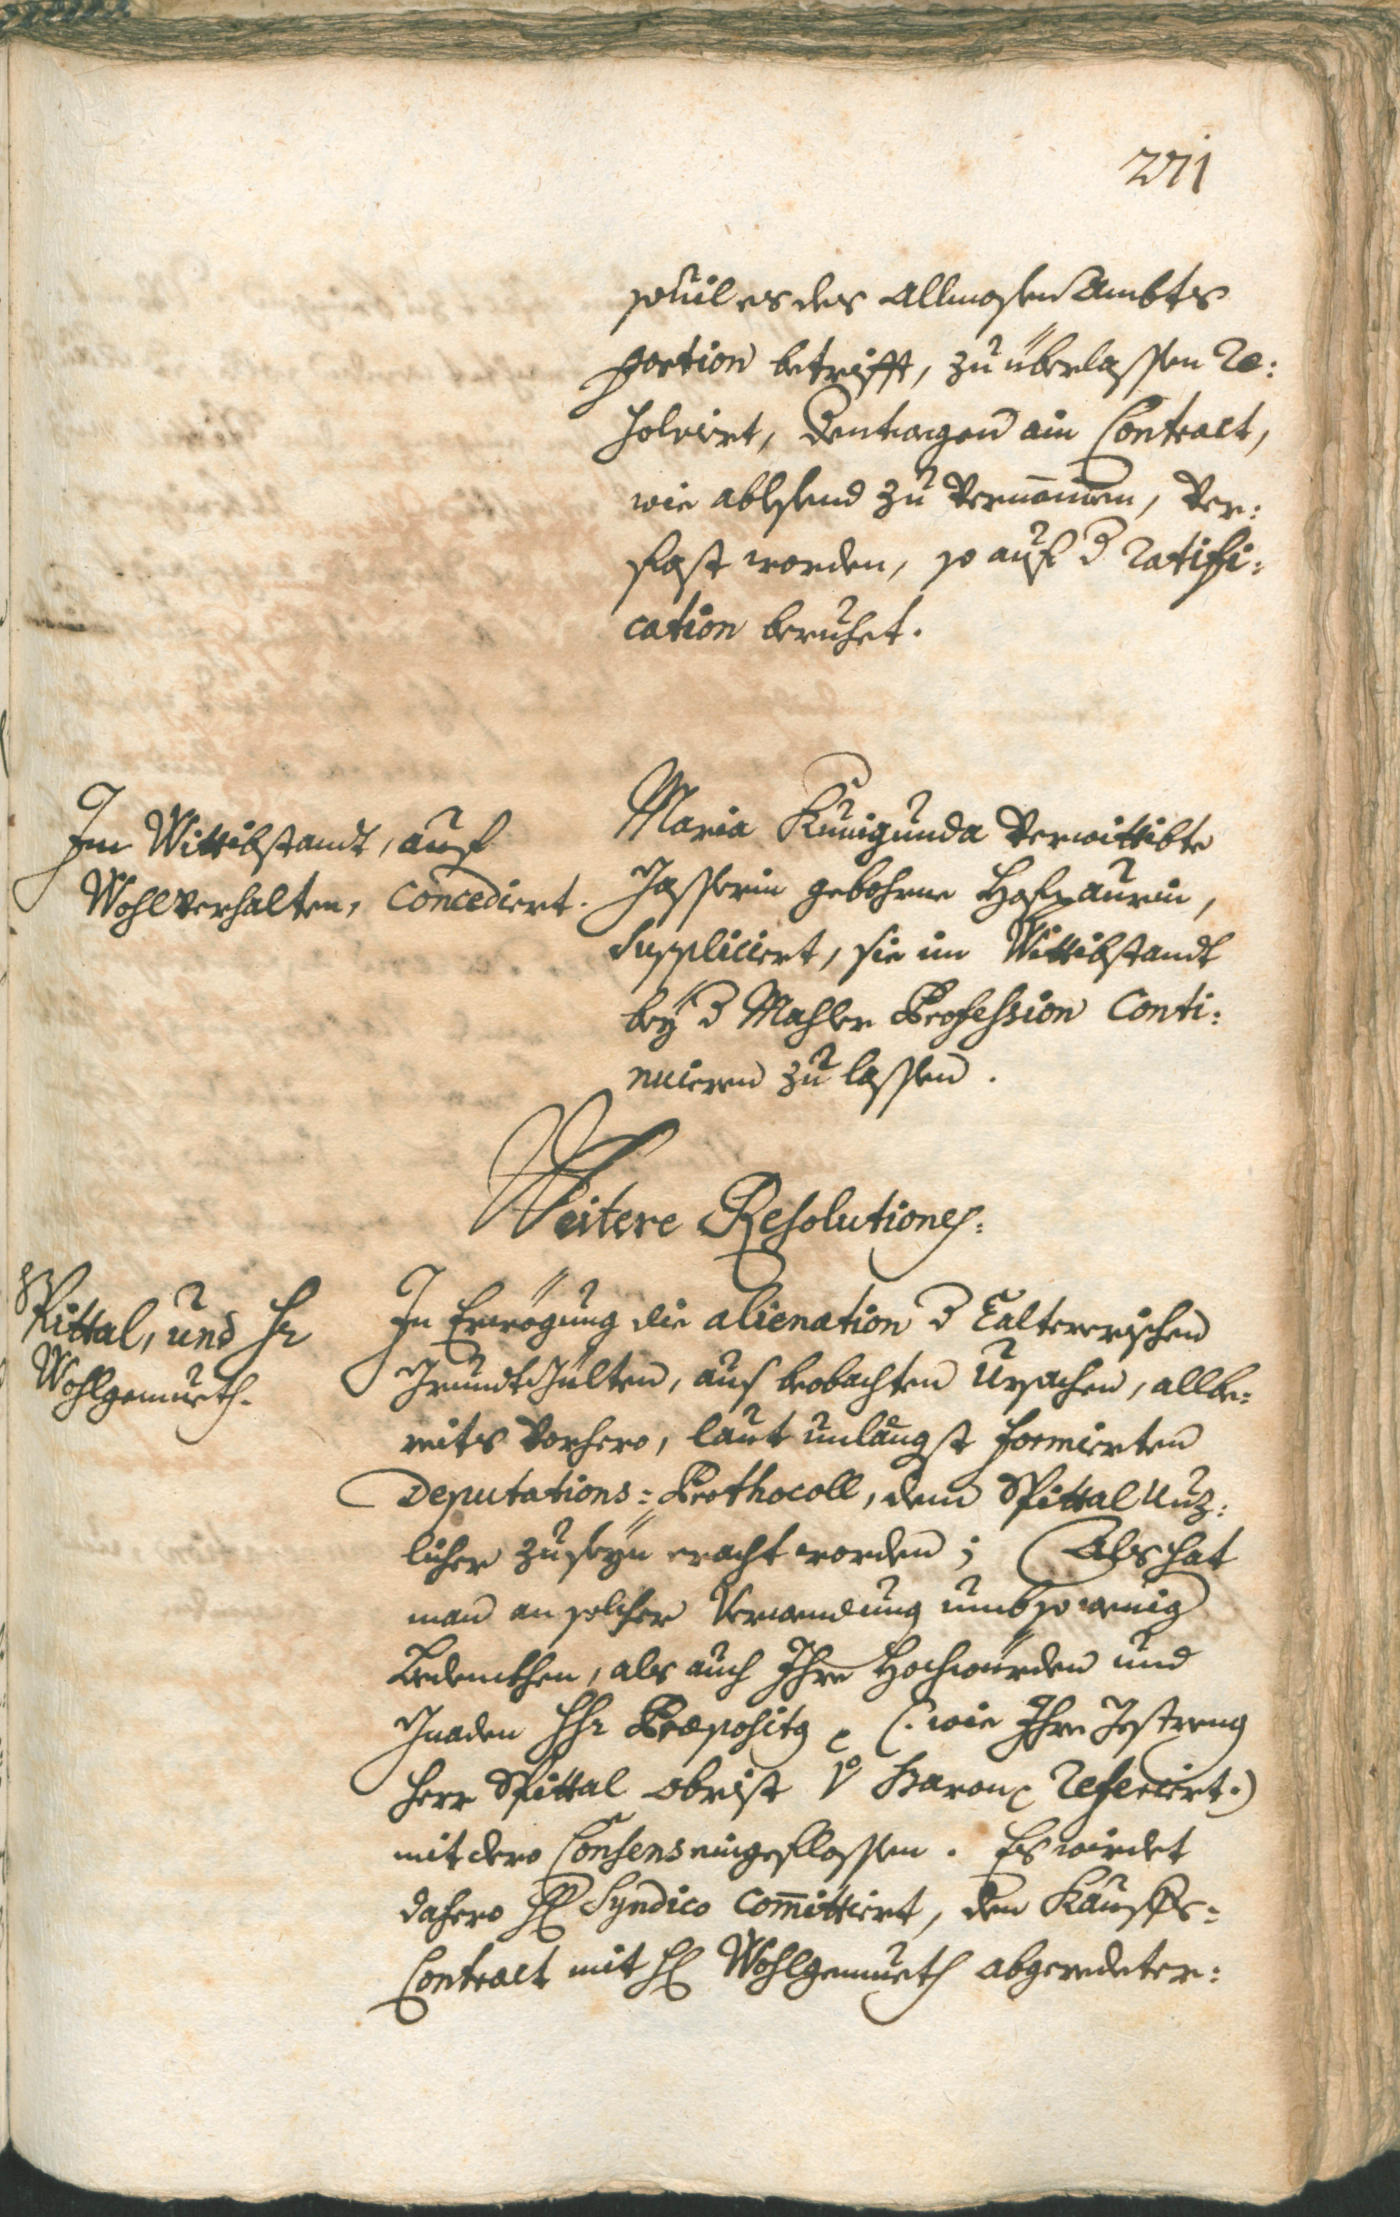 271
souil es des Allmosen Ambts
portion betrifft, zu überlassen Re:
solvirt, dentwegen ain Contract,
wie ablesend zu vernommen, ver:
fast worden, so auf d ratifi:
cation beruhet.
Im Wittibstandt, auf
Wohlverhalten, concediert.
Maria Kunigunda verwittibte
gebohrne
Suppliciert, sie im Wittibstandt
bey d Mahler Profession Conti:
nuieren zu lassen.
Weitere Resolutiones.
Spittal, und Hr
Wohlgemueth.
In Erwögung die alienation d
Grundt Gülten, aus beobachten Ursachen, allbe:
reits vorhero, laut unlängst formierten
Deputations=Prothocoll, dem Spittal Nuz:
licher zu seyn eracht worden; Als hat
man an solcher Verwendung umb so wenig
Bedenckhen, als auch Ihre Hochwürden und
Gnaden HHr Praepositus (: wie Ihre Gestreng
Herr Spittal Obrist V Baron referiert:)
mit dero Consens eingeflossen. Es wirdet
dahero H Syndico committiert, den Kauffs=
Contract mit H Wohlgemueth abgeredeter: